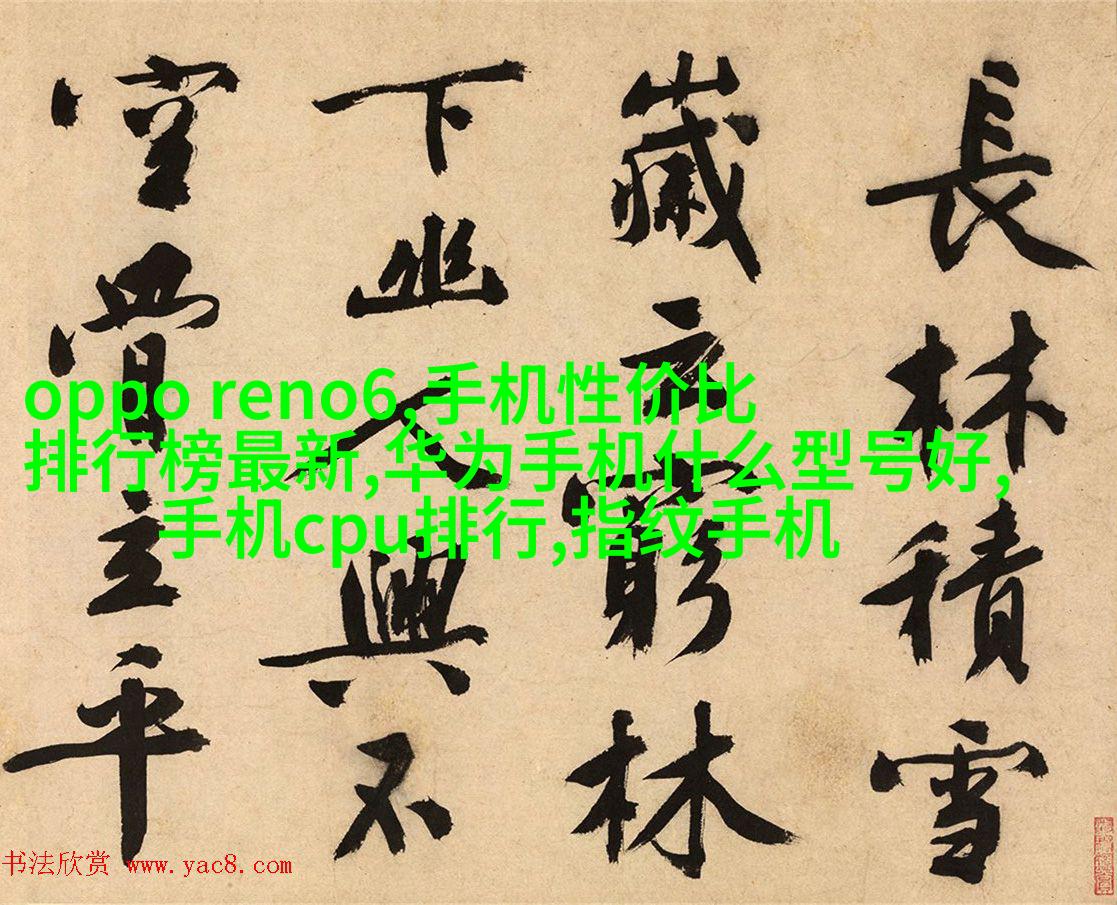 長林積雪
歲云窮林
下幽人興不
空立平
oppo reno6,手机性价比
排行榜最新,华为手机什么型号好,
手机cpu排行,指纹手机
书法欣赏 www.yac8.com